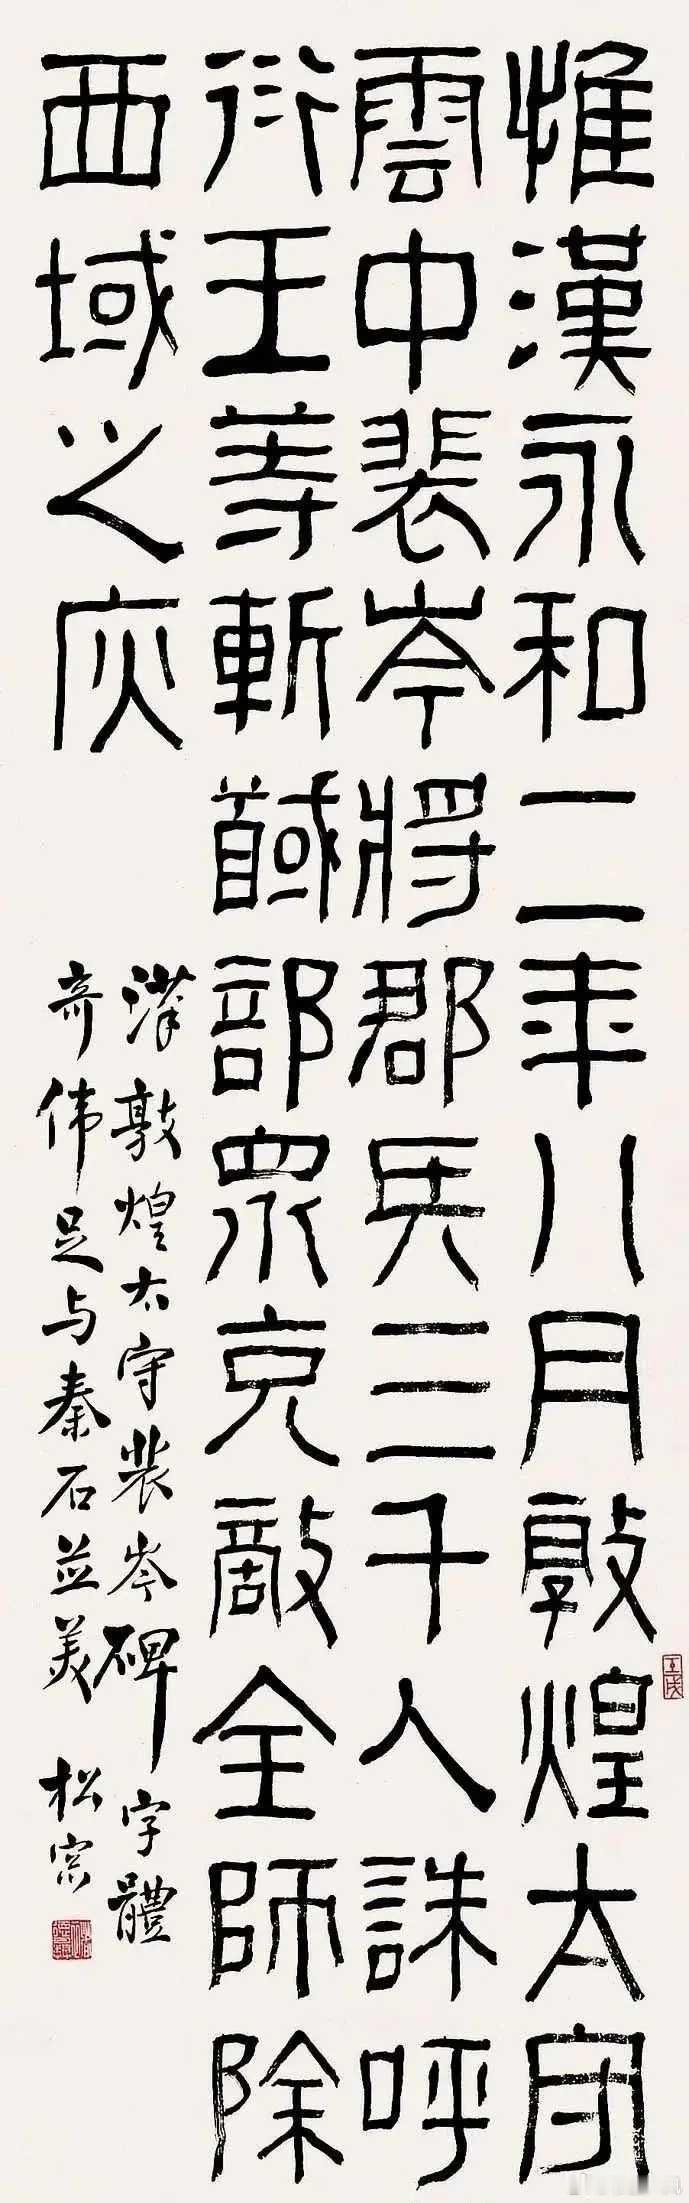 惟漢永和二年八月敦煌太守
雲中裴岑將郡兵三千人誅呼
衍王等斬馘部眾克敵全師除
西域之疢
漢敦煌太守裴岑碑字體
奇伟足与秦石並美 松宗